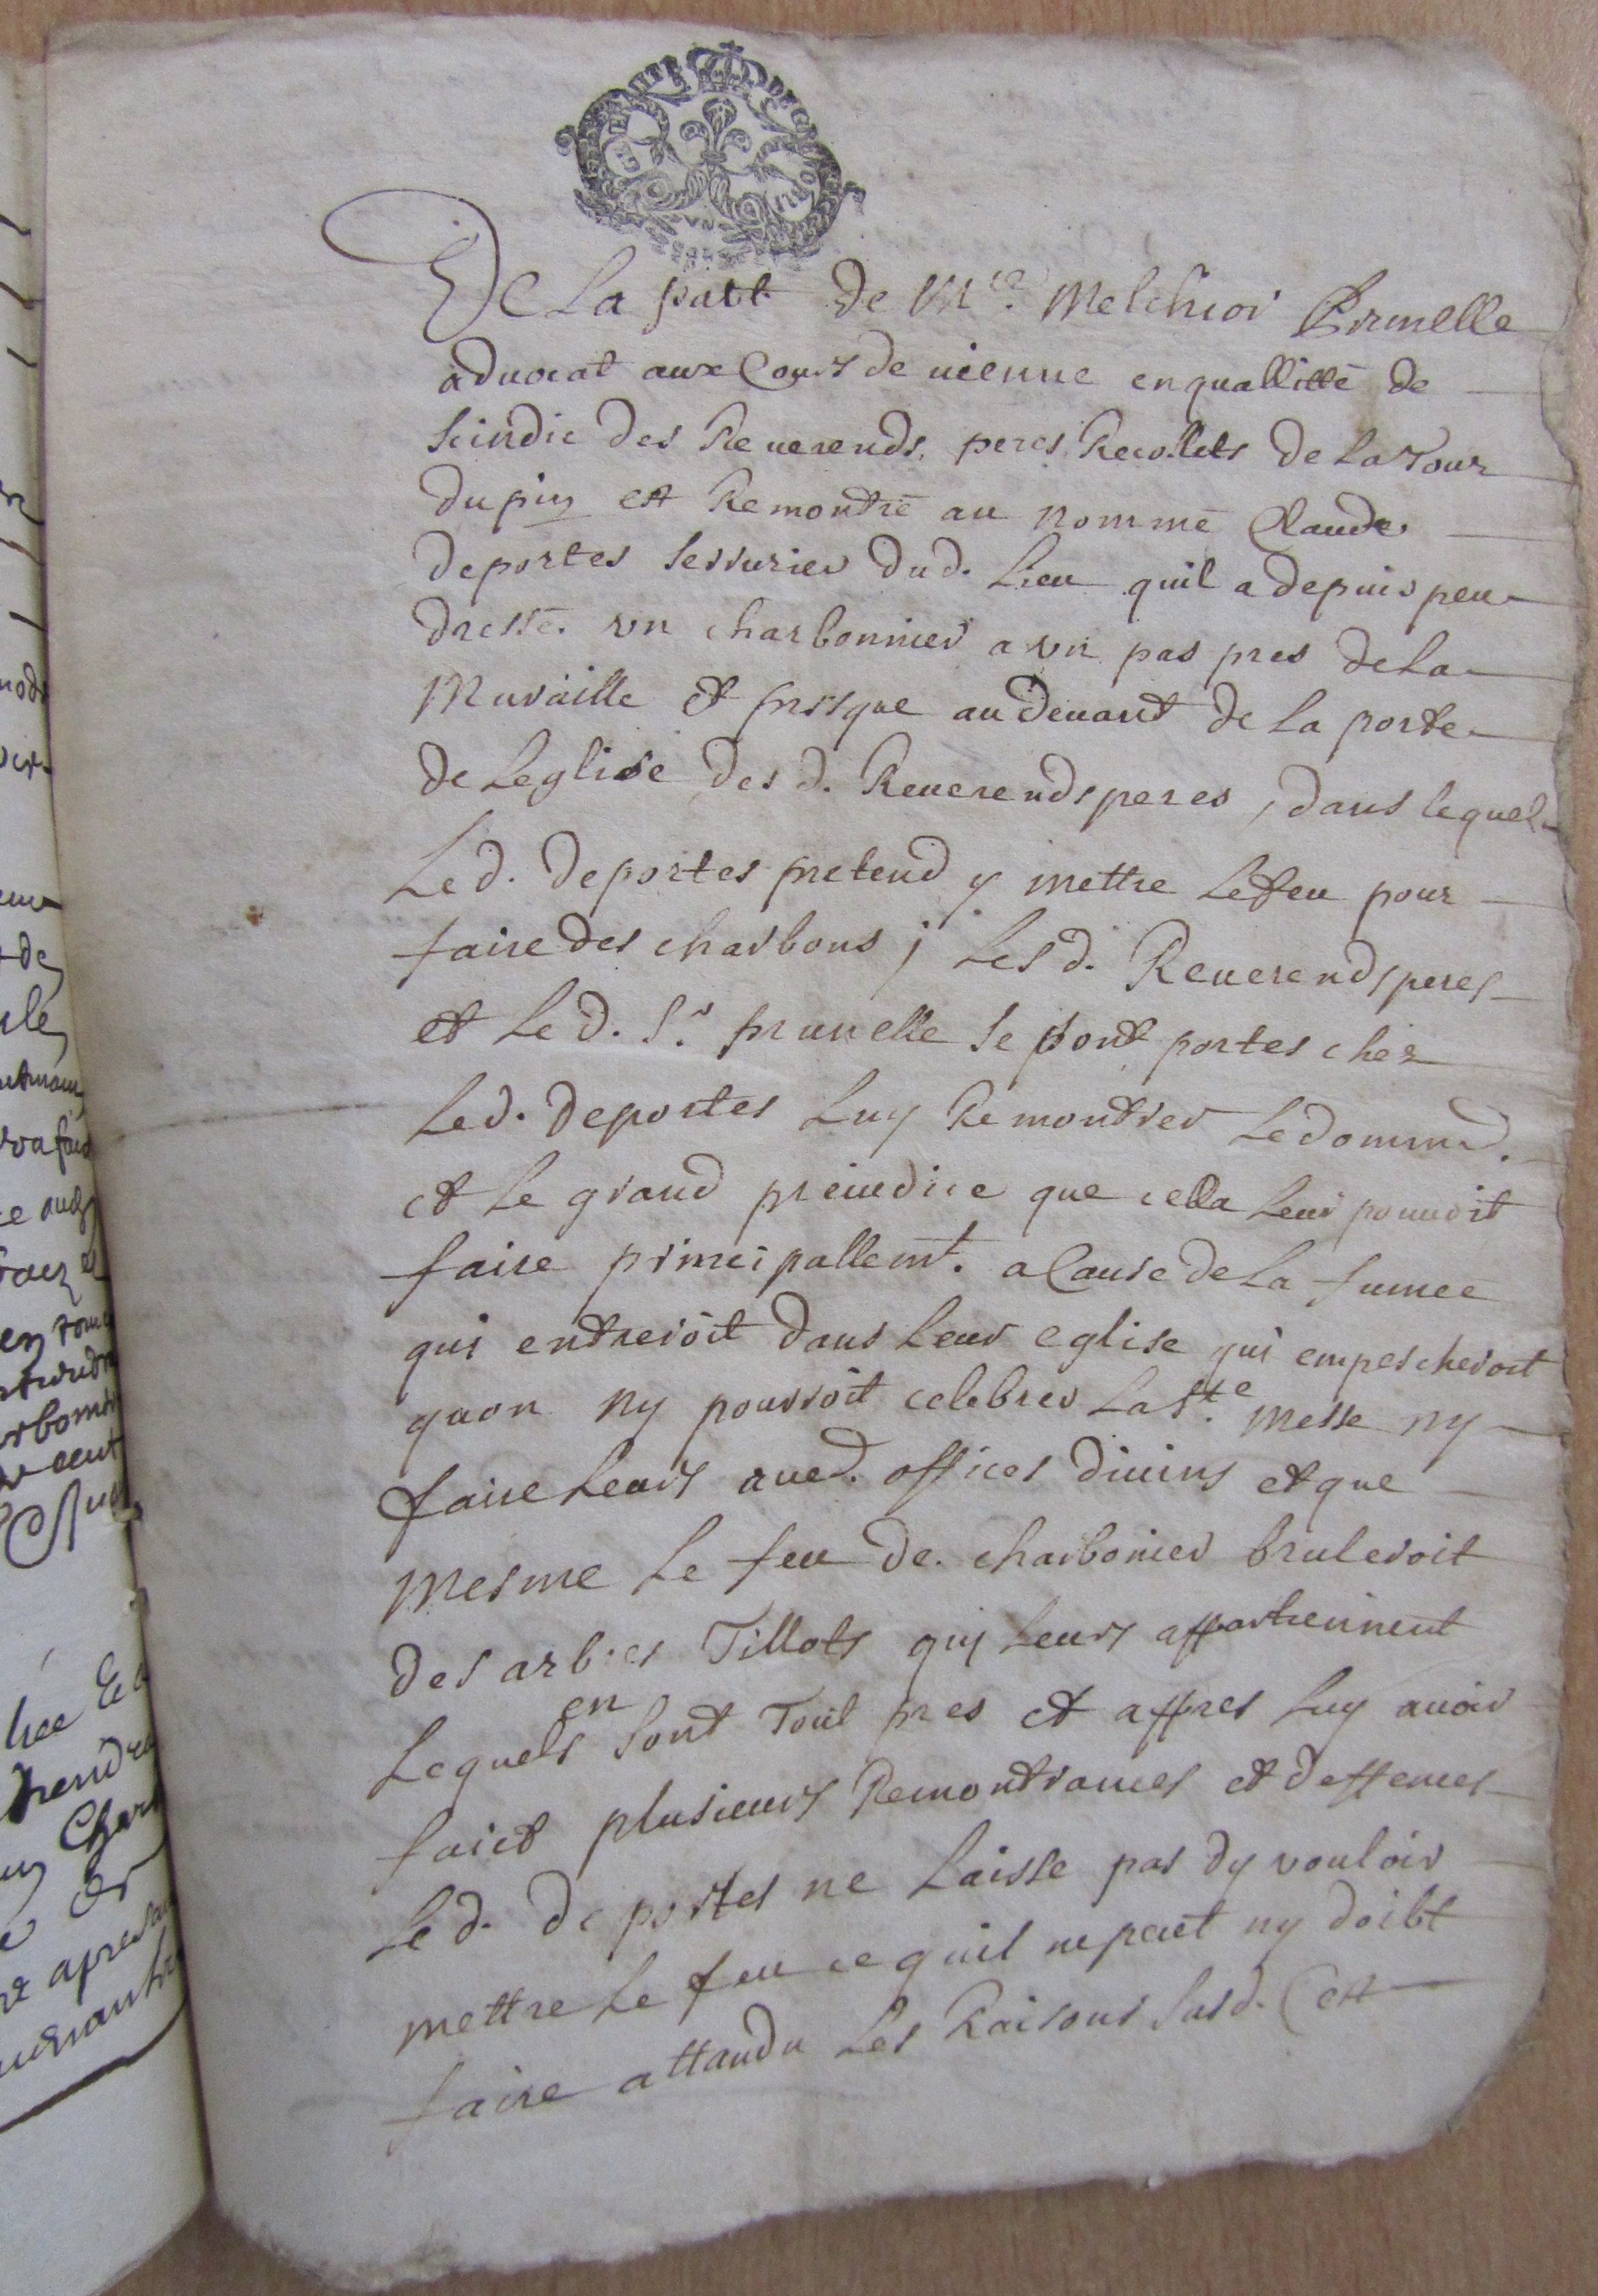 De La part de Mre. Melchior Prunelle
aduocat aux Cours de uienne en quallitté de
scindic des Reuerends peres Recollets de La Tour
dupin est Remontré au nommé Claude
deportes serrurier dud. Lieu quil a depuis peu
dressé vn charbonnier a vn pas pres de La
Muraille et presque au deuant de la porte
de Leglise des d. Reuerends peres, dans lequel
Led. deportes pretend y mettre Le feu pour
faire des charbons ; Les d. Reuerends peres
et Le d. Sr. prunelle se sont portes ches
Led. deportes Luy Remontrer Le domma.
et Le grand preiudice que cella Leur pouuoit
faire principallemt. a Cause de La fumee
qui entreroit dans Leur eglise qui empescheroit
quon ny pourroit celebrer La Ste. Messe ny
faire Leurs offices diuins et que
mesme Le feu de charbonier bruleroit
des arbres Tillots quy Leurs appartiennent
Lequels en sont Tout pres et appres Luy auoir
faict plusieurs Remontrances et deffences
Le d. deportes ne Laisse pas dy vouloir
mettre Le feu ce quil ne peut ny doibt
faire attandu Les Raisons susd. Cest